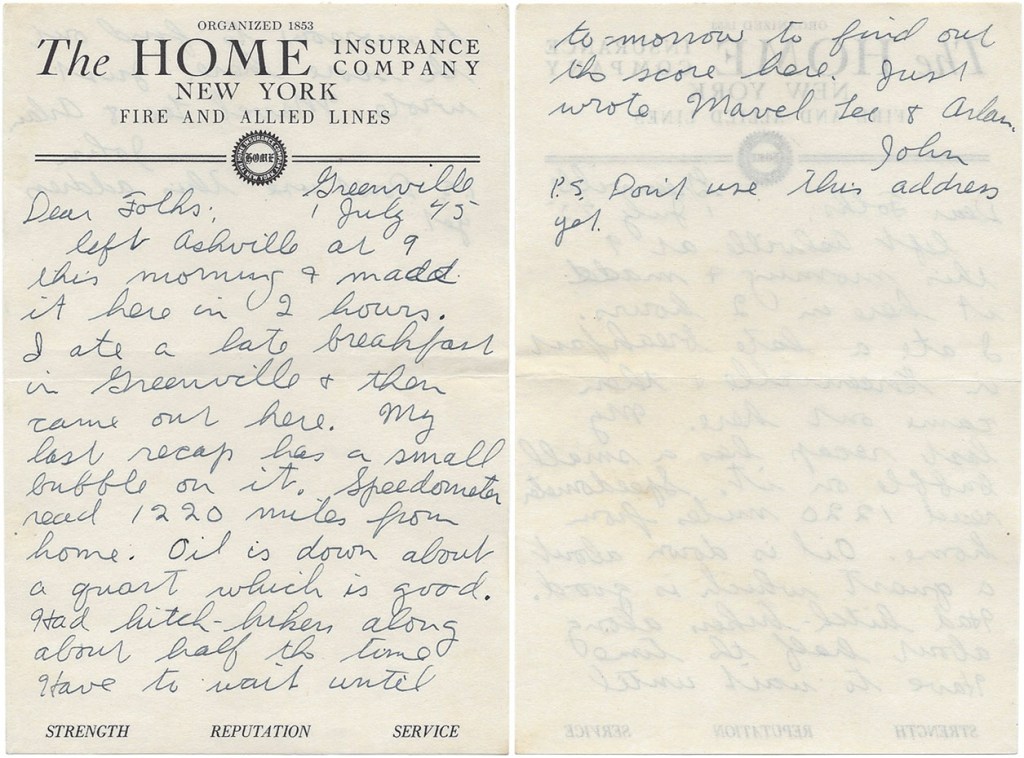 ORGANIZED 1853
The HOME INSURANCE COMPANY
NEW YORK
FIRE AND ALLIED LINES
HOME
Greenville
Dear Folks; 1 July 45
left Ashville at 9
this morning & made
it here in 2 hours.
I ate a late breakfast
in Greenville & then
came out here. My
last recap has a small
bubble on it. Speedometer
read 1220 miles from
home. Oil is down about
a quart which is good.
Had hitch-hikers along
about half the time
Have to wait until
STRENGTH REPUTATION SERVICE
to-morrow to find out
the score here. Just
wrote Mavel Lee & Arlan.
John
P.S. Don't use this address
yet.